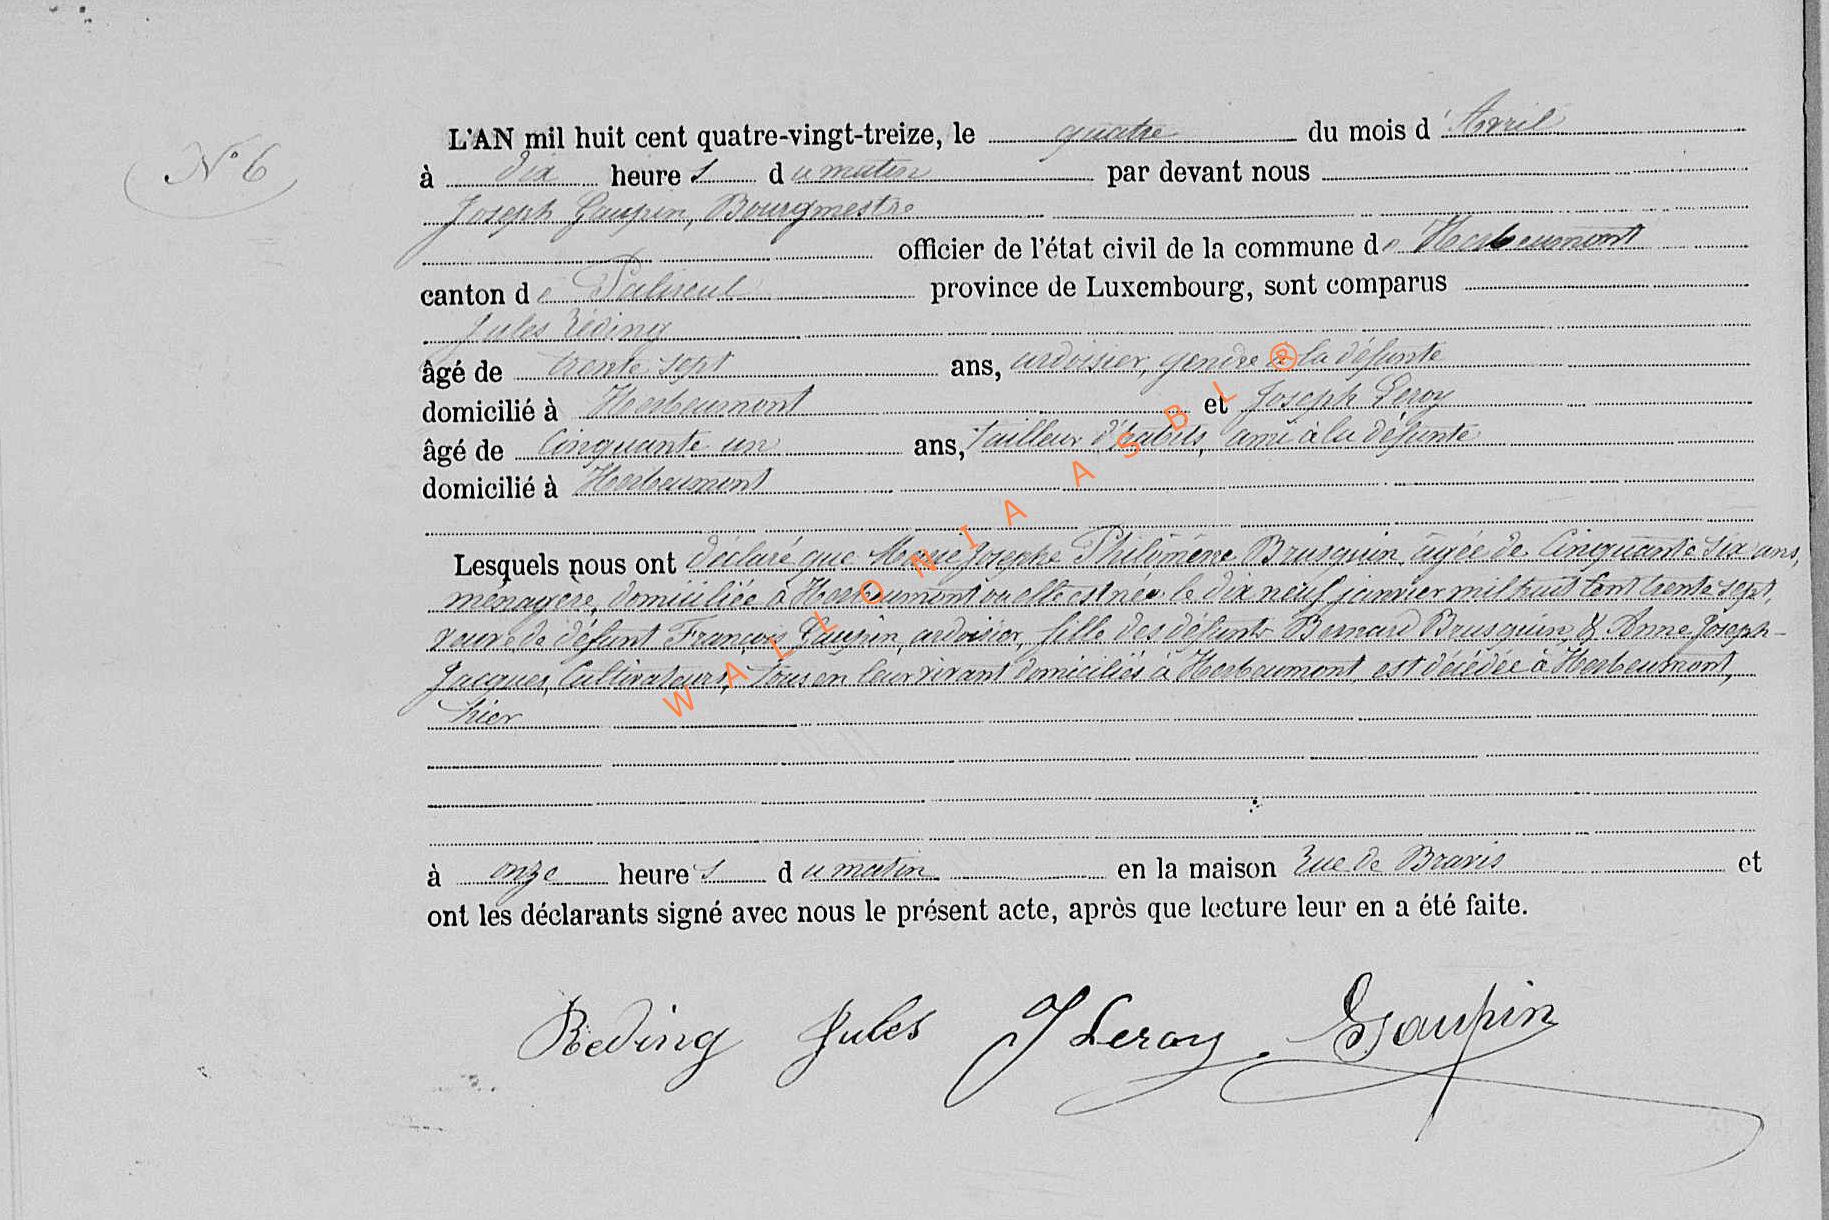 N° 6
L'AN mil huit cent quatre-vingt-treize, le quatre du mois d'Avril
à dix heures du matin par devant nous
Joseph Gaupin, Bourgmestre
officier de l'état civil de la commune de Herbeumont
canton de Paliseul province de Luxembourg, sont comparus
Jules Réding
âgé de trente sept ans, ardoisier, gendre à la défunte
domicilié à Herbeumont et Joseph Leroy
âgé de Cinquante un ans, tailleur d'habits, ami à la défunte
domicilié à Herbeumont
Lesquels nous ont déclaré que Marie Josephe Philomène Brusquin, âgée de Cinquante six ans,
ménagère, domiciliée à Herbeumont où elle est née le dix neuf janvier mil huit Cent trente sept,
veuve de défunt François Gaupin, ardoisier, fille des défunts Bernard Brusquin & Anne Joseph-
Jacques, Cultivateurs, tous en leur vivant domiciliés à Herbeumont, est décédée à Herbeumont,
hier
à onze heures du matin en la maison Rue de Bravis et
ont les déclarants signé avec nous le présent acte, après que lecture leur en a été faite.
Reding Jules J Leroy Gaupin
WALLONIA ASBL ®